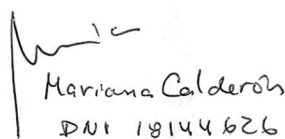 Mariana Calderón
DNI 18144626